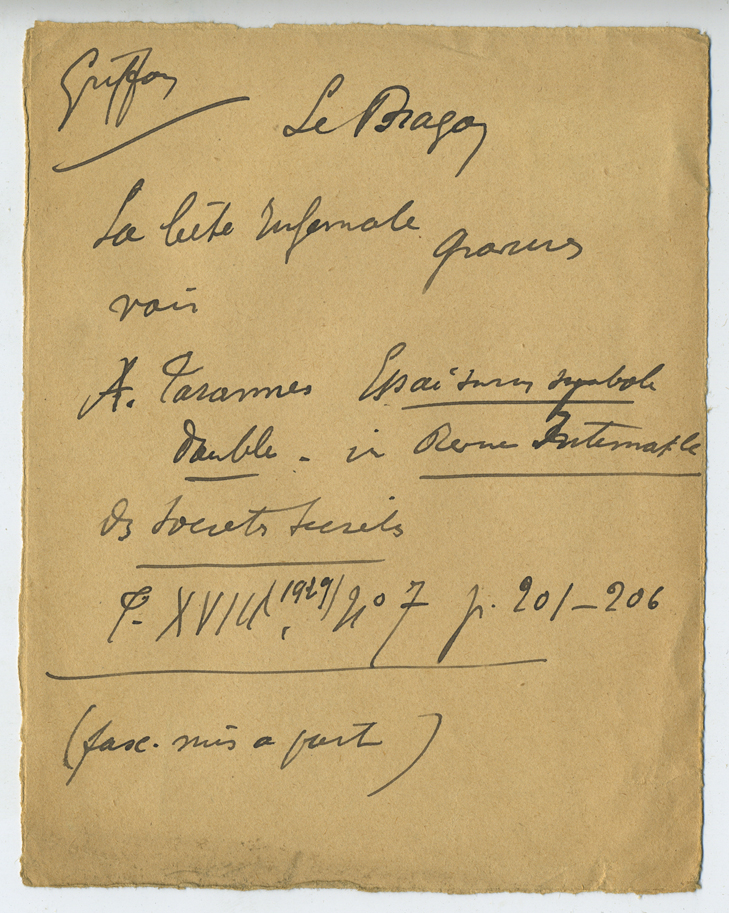 Griffon
Le Dragon
La bête infernale gravures
voir
A. Tarannes Essai sur un symbole
double - in Revue Internat.le
des Sociétés Secrètes
T. XVIII (1929) No 7 p. 201-206
(fasc. mis a part)